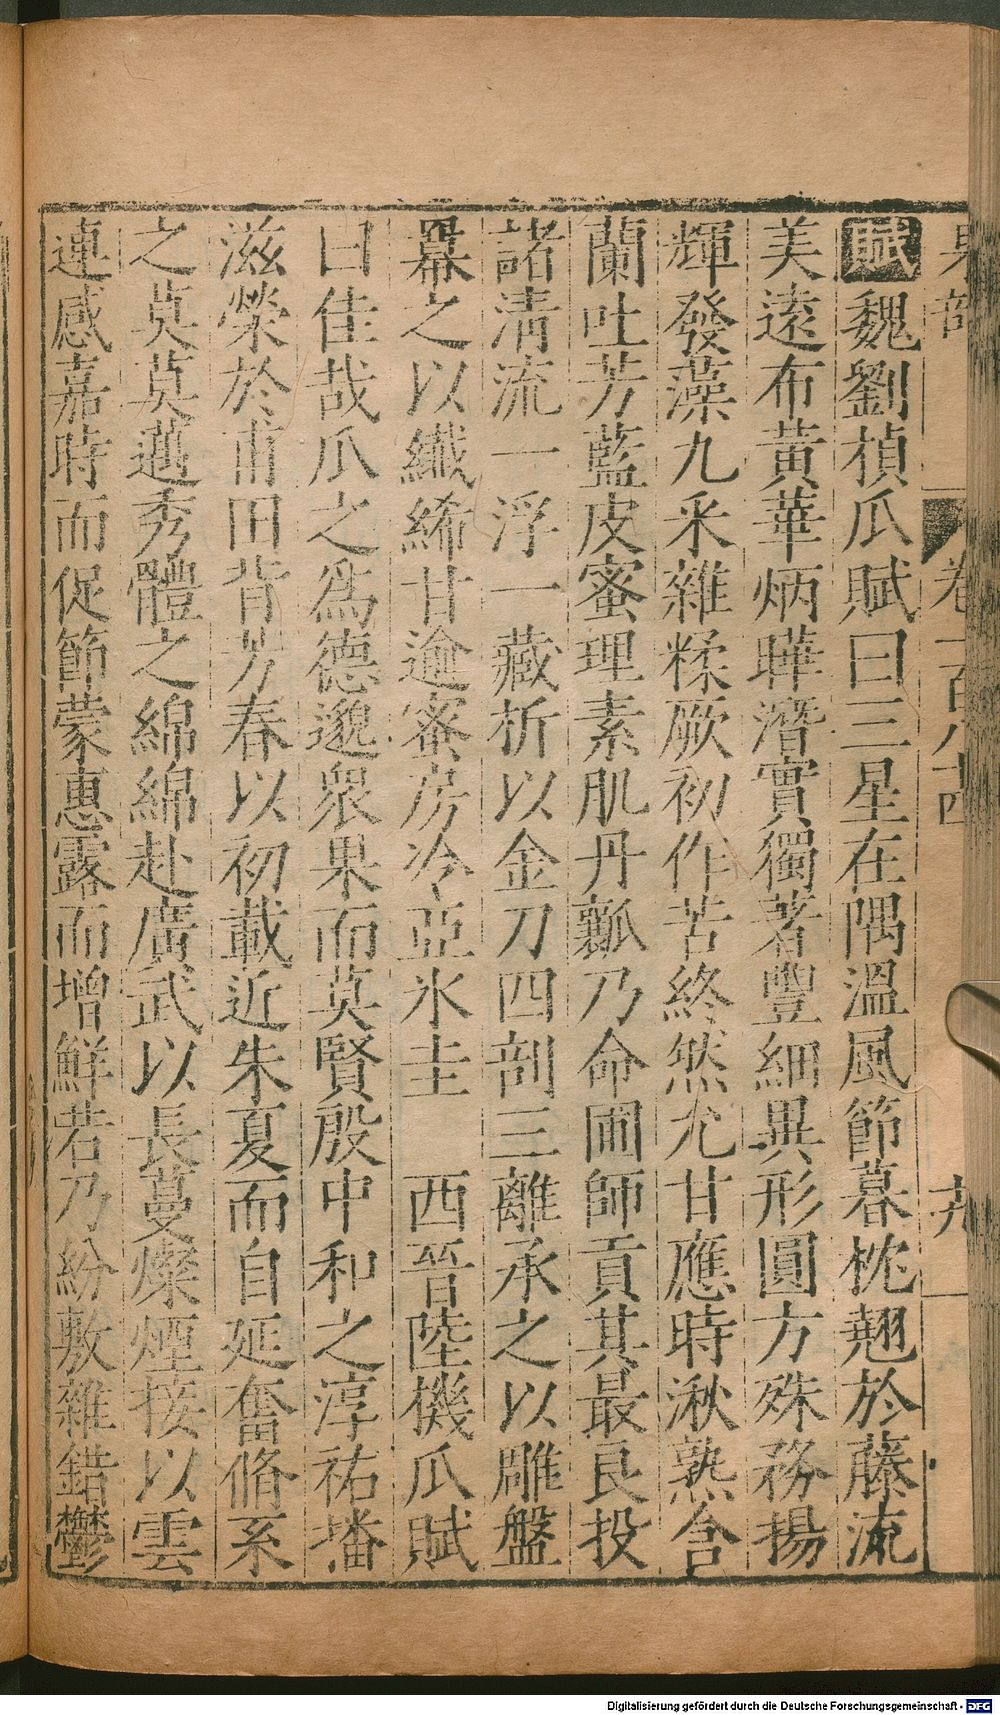 果部 卷一百八十四 九
賦魏劉楨瓜賦曰三星在隅溫風節暮枕翹於藤流
美遠布黃華炳曄潛實獨著豐細異形圓方殊務揚
輝發藻九采雜糅厥初作苦終然尤甘應時湫熟含
蘭吐芳藍皮蜜理素肌丹瓤乃命圃師貢其最良投
諸清流一浮一藏析以金刀四剖三離承之以雕盤
羃之以纖絺甘逾蜜房冷亞氷圭 西晉陸機瓜賦
曰佳哉瓜之爲德邈衆果而莫賢殷中和之淳祐播
滋榮於甫田背芳春以初載近朱夏而自延奮脩系
之莫莫邁秀體之綿綿赴廣武以長蔓燦煙接以雲
連感嘉時而促節蒙惠露而增鮮若乃紛敷雜錯鬱
Digitalisierung gefördert durch die Deutsche Forschungsgemeinschaft - DFG